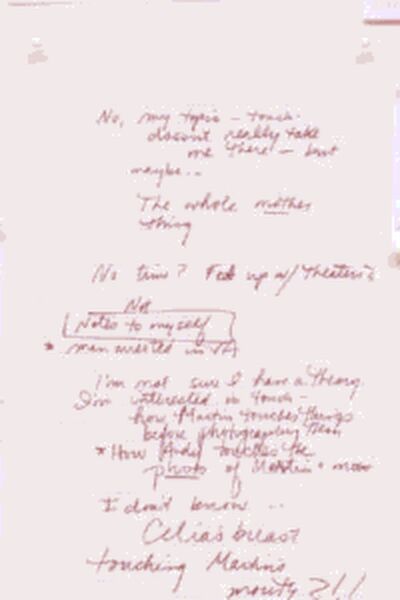 No, my topic - touch -
doesn't really take
me there - but
maybe...
The whole mother
thing
No time? Fed up w/ theaters?
Not
Notes to myself
* man arrested in VA
I'm not sure I have a theory
I'm interested in touch -
how Martin touches things
before photographing them
* How Andy touches the
photo of Martin + mom
I don't know ...
Celia's breast
touching Martin's
mouth ?!!